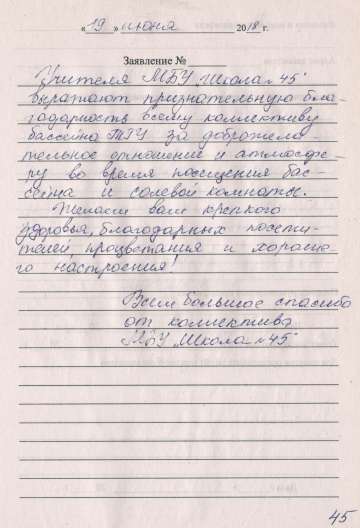 «19» июня 2018 г.
Заявление №
Учителя МБУ „Школа № 45"
выражают признательную бла-
годарность всему коллективу
бассейна ТГУ за доброжела-
тельное отношение и атмосфе-
ру во время посещения бас-
сейна и солевой комнаты.
Желаем вам крепкого
здоровья, благодарных посети-
телей, процветания и хороше-
го настроения!
Всем большое спасибо
от коллектива
МБУ „Школа № 45"
45